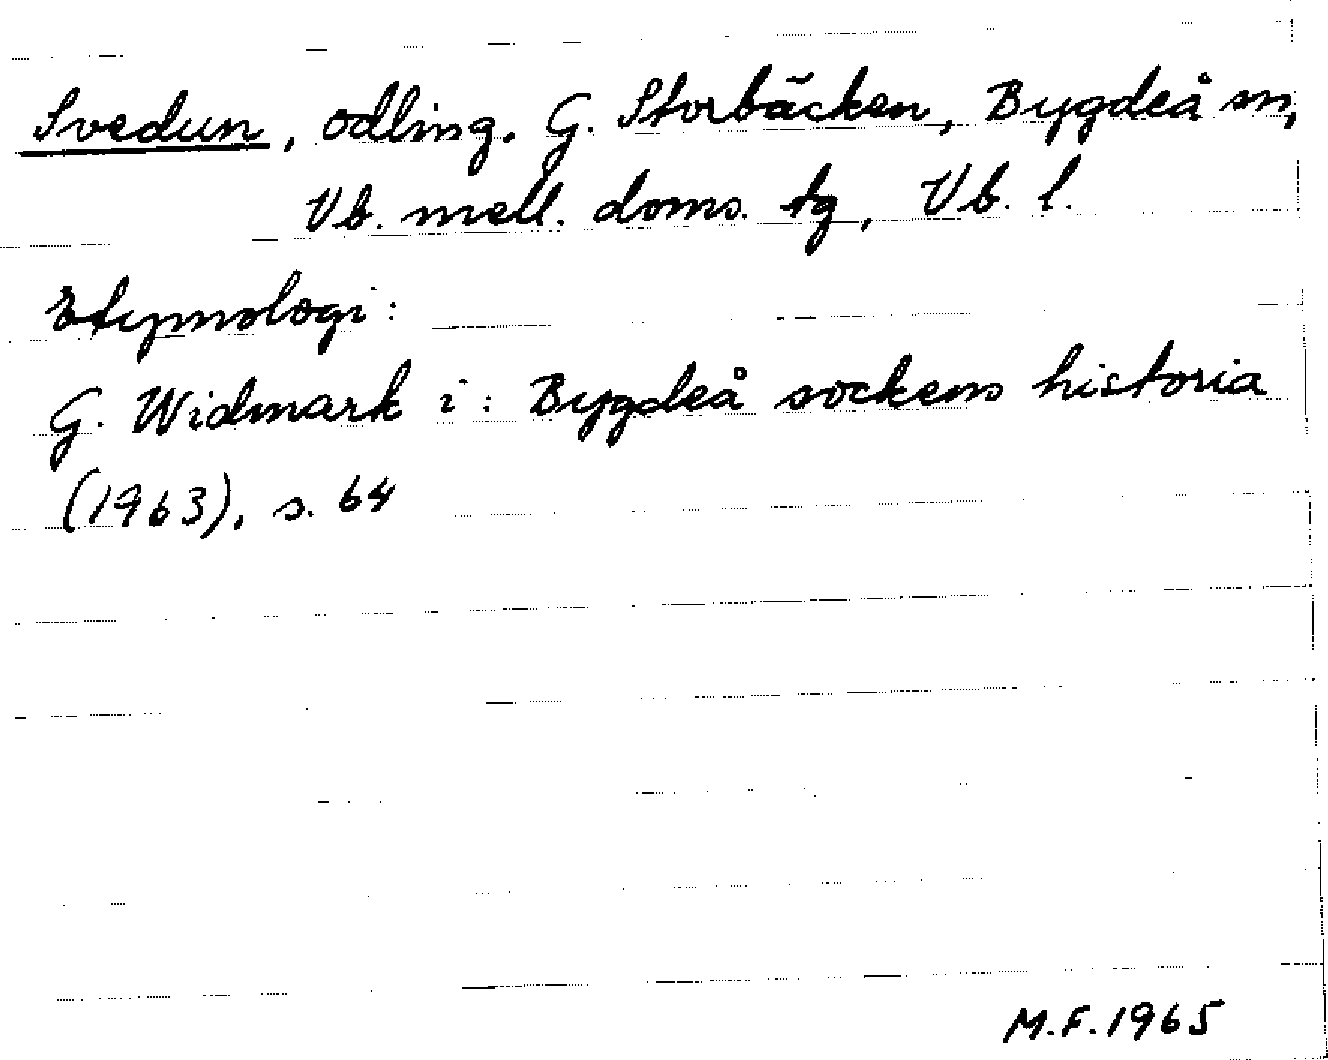 Svedun, odling. G. Storbäcken, Bygdeå sn,
Vb. mell. doms. tg, Vb. l.
Etymologi:
G. Widmark i: Bygdeå sockens historia
(1963), s. 64
M.F. 1965